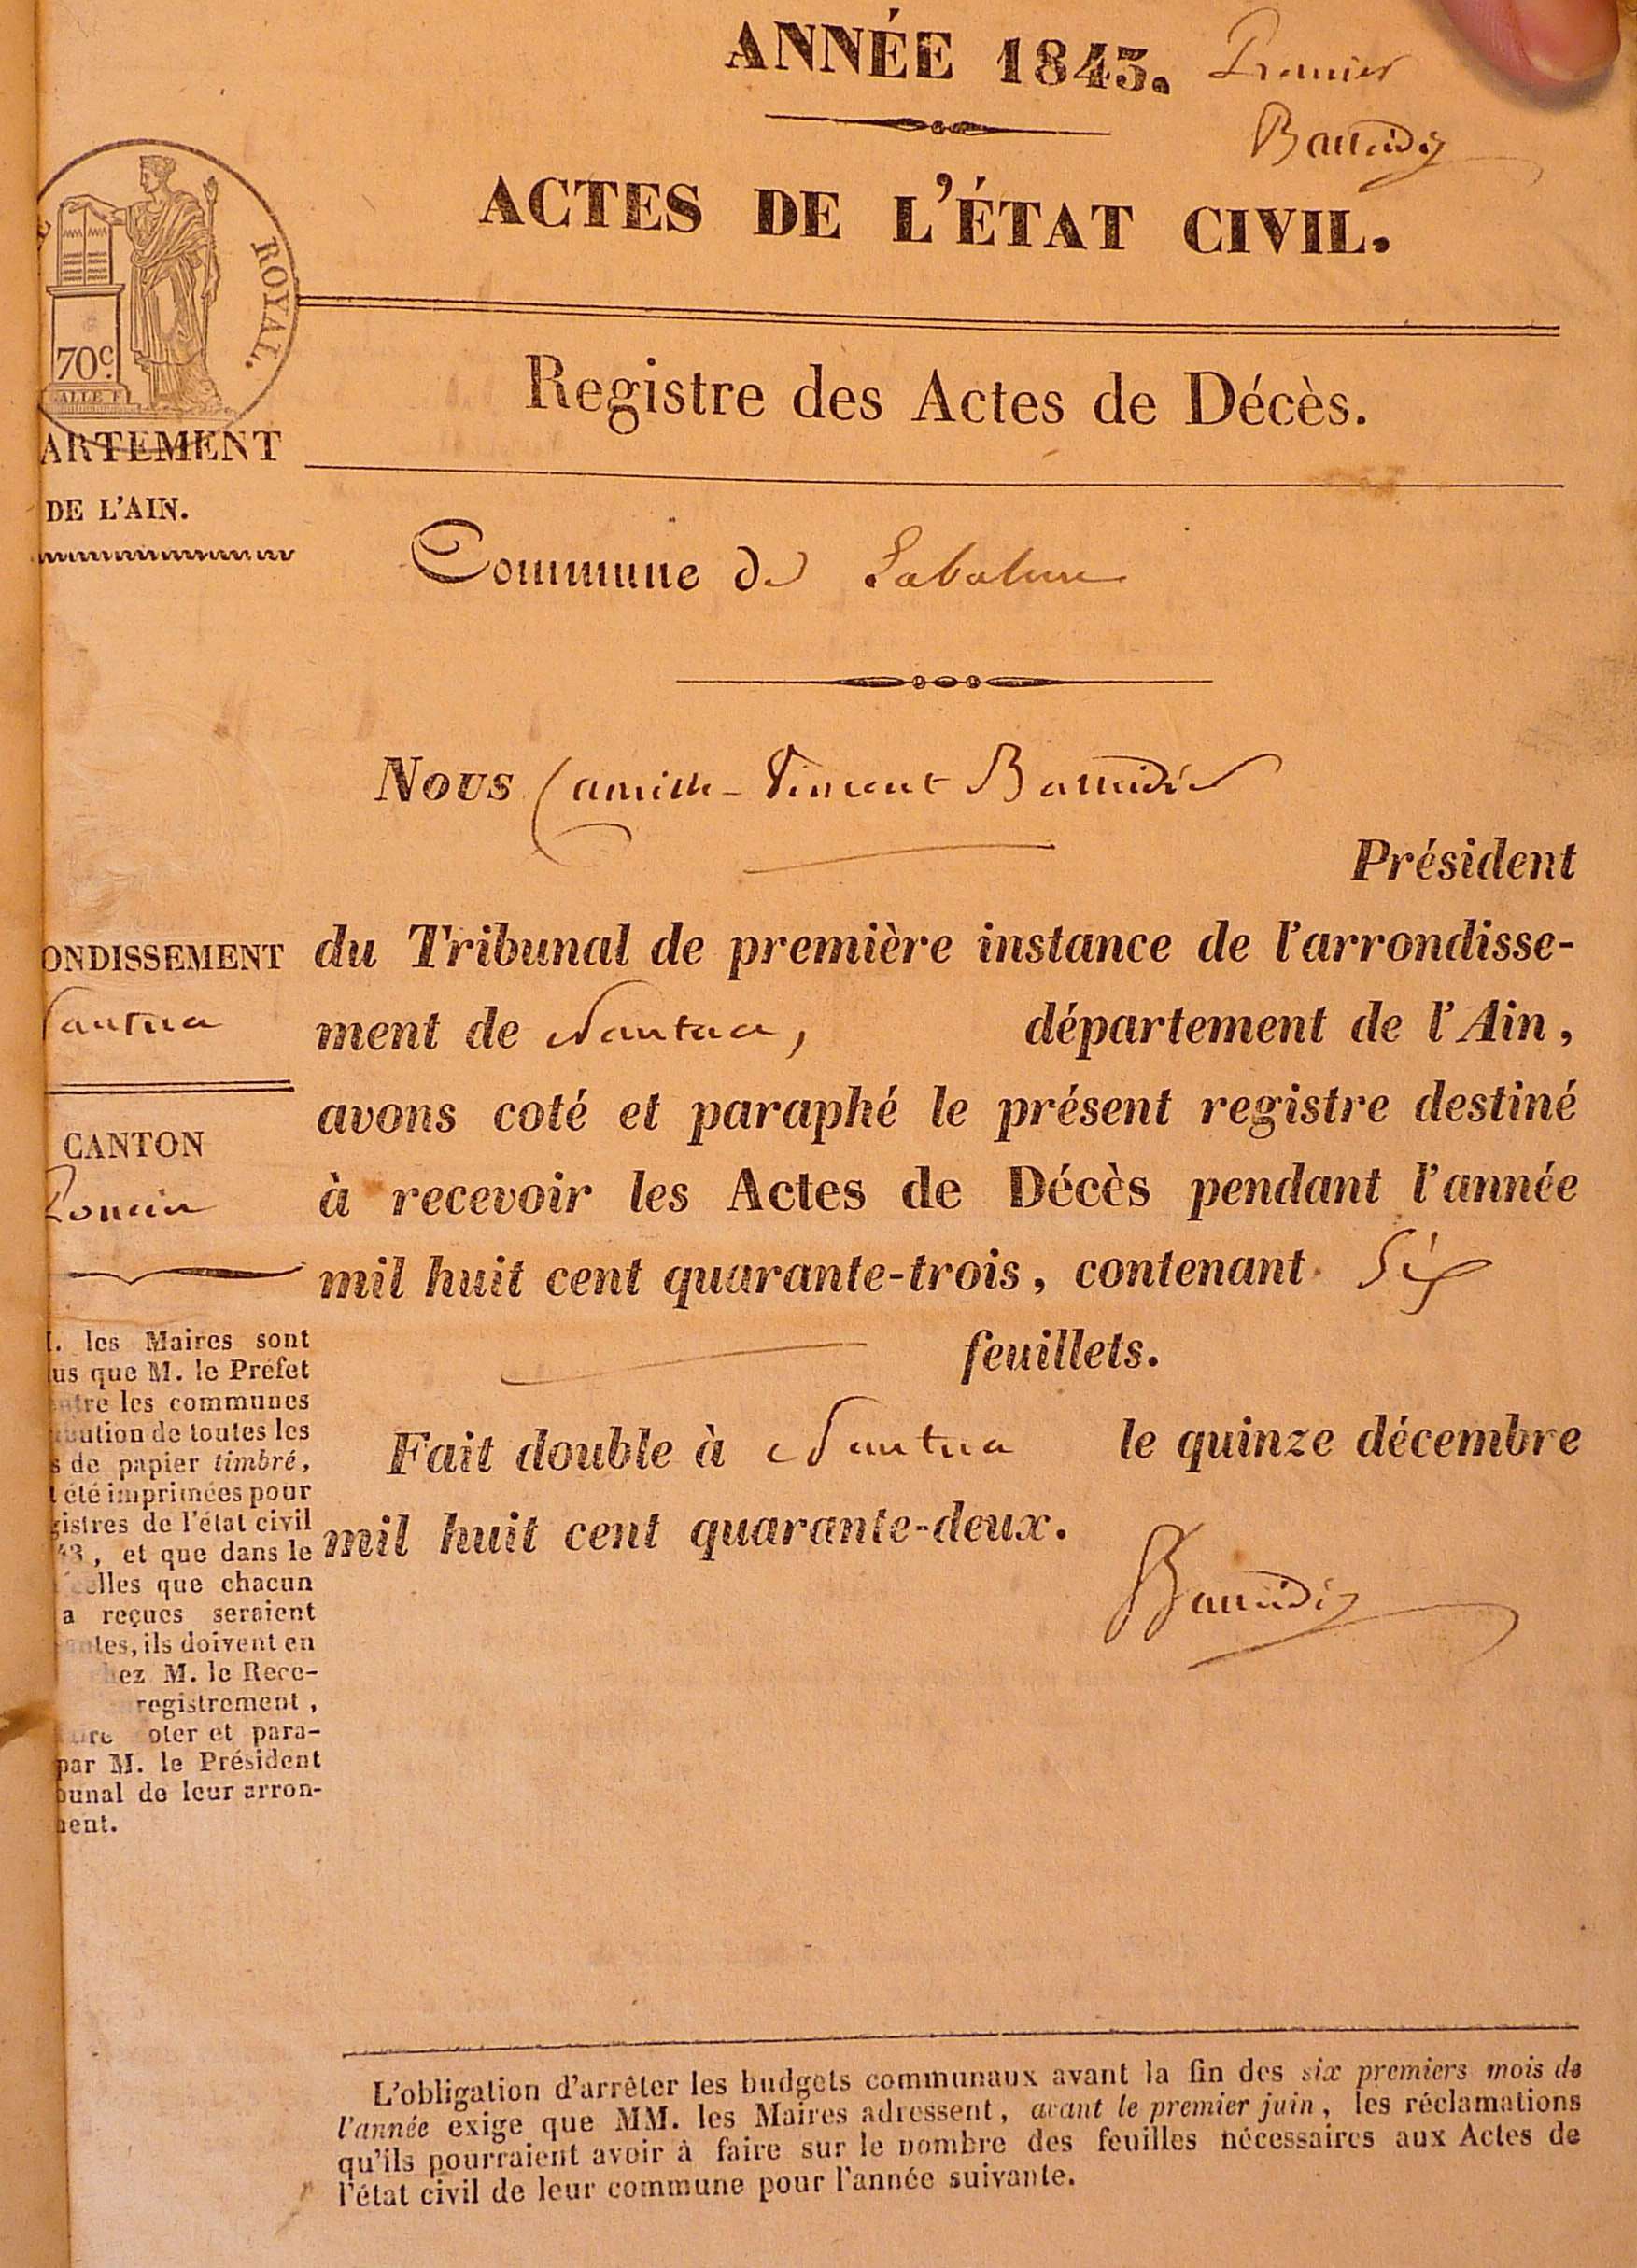 ANNÉE 1843. Premier
Baudin
ACTES DE L'ÉTAT CIVIL.
ROYAL.
70c
Registre des Actes de Décès.
ARTEMENT
DE L'AIN.
Commune de Labalme
Nous Camille-Vincent
Président
ONDISSEMENT
Nantua
CANTON
du Tribunal de première instance de l'arrondisse-
ment de Nantua, département de l'Ain,
avons coté et paraphé le présent registre destiné
à recevoir les Actes de Décès pendant l'année
mil huit cent quarante-trois, contenant Six
feuillets.
Fait double à Nantua le quinze décembre
mil huit cent quarante-deux.
. les Maires sont
us que M. le Préfet
tre les communes
bution de toutes les
s de papier timbré,
t été imprimées pour
gistres de l'état civil
43, et que dans le
celles que chacun
a reçues seraient
antes, ils doivent en
hez M. le Rece-
registrement,
ire oter et para-
par M. le Président
bunal de leur arron-
ment.
L'obligation d'arrêter les budgets communaux avant la fin des six premiers mois de
l'année exige que MM. les Maires adressent, avant le premier juin, les réclamations
qu'ils pourraient avoir à faire sur le nombre des feuilles nécessaires aux Actes de
l'état civil de leur commune pour l'année suivante.